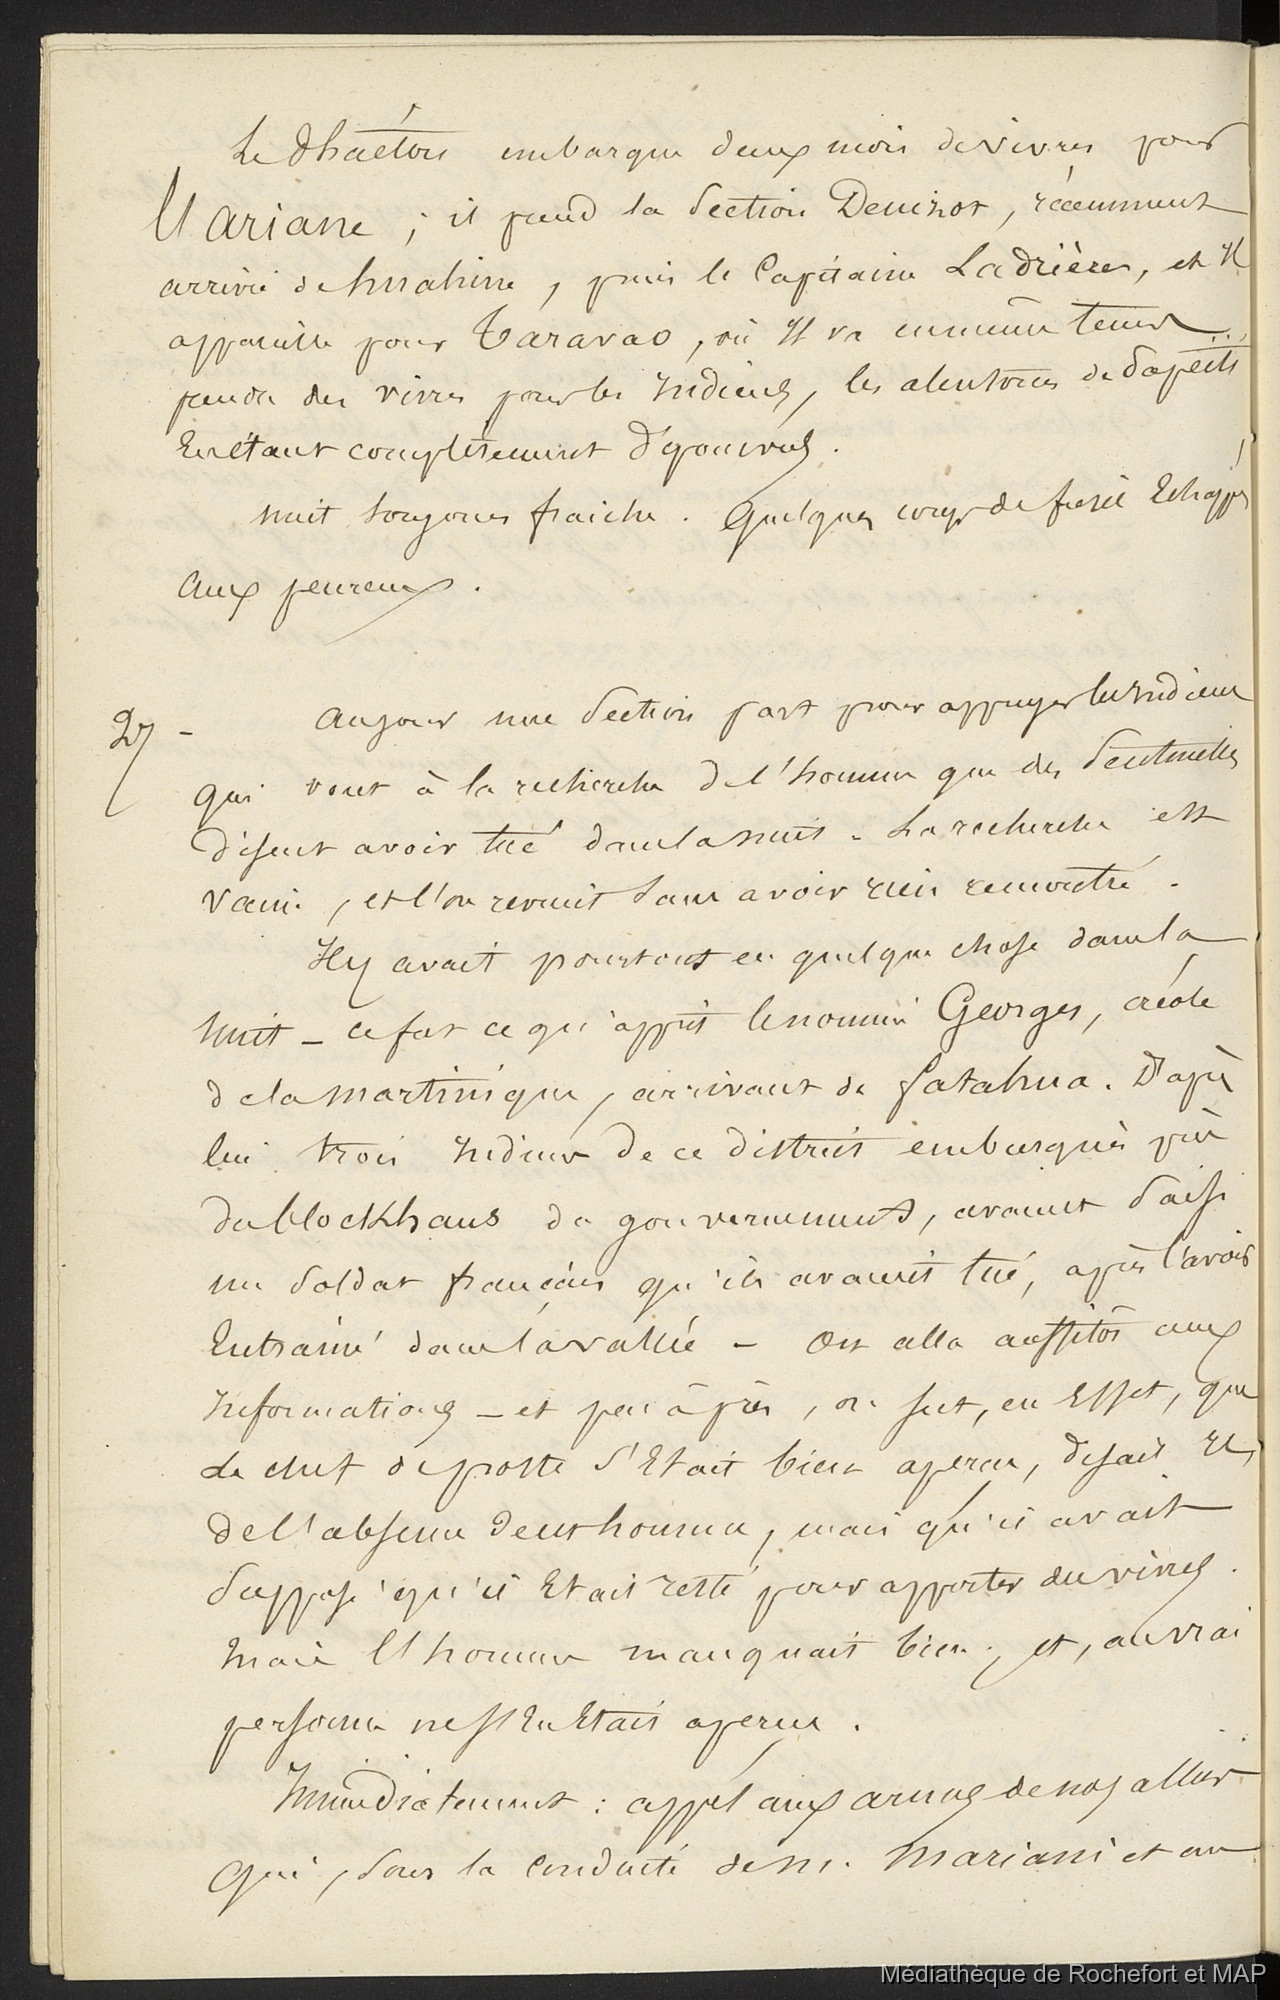 Le Phaéton embarque deux mois de vivres pour
l'Ariane ; il prend la section Denizot, récemment
arrivée de huahine, puis le Capitaine Ladrières, et Il
appareille pour Taravao, où Il va en même temps
prendre des vivres pour les Indiens, les alentours de Papeïti
En étant complètement dépourvus.
nuit toujours fraiche. Quelques coups de fusil Echappés
aux peureux.
27 - Au jour une section part pour appuyer les Indiens
qui vont à la recherche de l'homme que des sentinelles
disent avoir tué dans la nuit. La recherche est
vaine, et l'on revient sans avoir rien rencontré.
Il y avait pourtant eu quelque chose dans la
nuit - ce fut ce qu'apprit le nommé Georges, créole
de la martinique, arrivant de fatahua. D'après
lui trois Indiens de ce district embusqués près
du blockhaus du gouvernement, avaient saisi
un soldat français qu'ils avaient tué, après l'avoir
Entrainé dans la vallée - On alla aussitôt aux
Informations - et peu après, on sut, en Effet, que
Le chef de poste s'Etait bien aperçu, disait Il,
de l'absence de cet homme, mais qu'il avait
supposé qu'il Etait resté pour apporter des vivres.
Mais l'homme manquait bien ; et, au vrai
personne ne s'En Etait aperçu.
Immédiatement : appel aux armes de nos alliés
qui, sous la conduite de M. Mariani et au
Médiathèque de Rochefort et MAP